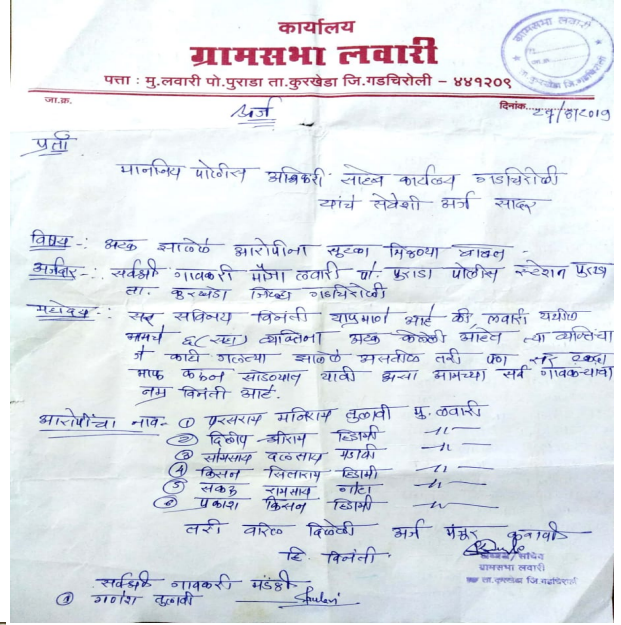 कार्यालय
ग्रामसभा लवारी
पत्ता : मु.लवारी पो.पुराडा ता.कुरखेडा जि.गडचिरोली - ४४१२०९
जा.क्र.
दिनांक
अर्ज
प्रती
माननिय पोलीस अधिकारी साहेब कार्यालय गडचिरोली
यांचे सेवेशी अर्ज सादर
विषय -: अटक झालेले आरोपीना सुटका मिळण्या बाबत -
अर्जदार -: सर्वश्री गावकरी मौजा लवारी पो. पुराडा पोलीस स्टेशन पुराडा
ता. कुरखेडा जिल्हा गडचिरोली
महोदय -: सर सविनय विनंती याप्रमाणे आहे की, लवारी येथील
आमचे ६ (सहा) व्यक्तिना अटक केलेली आहेत त्या व्यक्तिंचा
जे काही गलत्या झालेले असतील तरी पण सर एकदा
माफ करून सोडण्यात यावी असा आमच्या सर्व गावकऱ्यांची
नम्र विनंती आहे.
आरोपींचा नाव - ① परसराम मनिराम तुलावी मु. लवारी
② दिलीप श्रीराम हिडामी -॥-
③ सोमसाय दलसाय मडावी -॥-
④ किसन सिताराम हिडामी -॥-
⑤ सकरू रामसाय गोटा -॥-
⑥ प्रकाश किसन हिडामी -॥-
तरी वरिल दिलेली अर्ज मंजूर करावी
हि विनंती
सचिव
ग्रामसभा लवारी
ता.कुरखेडा जि.गडचिरोली
सर्वश्री गावकरी मंडळी
① गणेश तुलावी